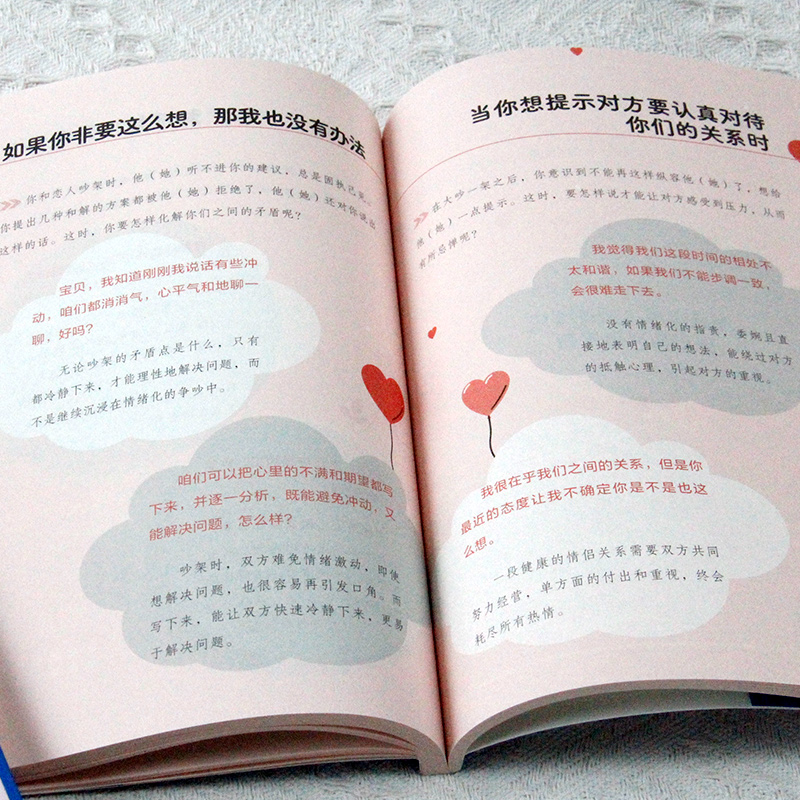 如果你非要这么想，那我也没有办法
你和恋人吵架时，他（她）听不进你的建议，总是固执己见。
你提出几种和解的方案都被他（她）拒绝了，他（她）还对你说出
这样的话。这时，你要怎样化解你们之间的矛盾呢？
宝贝，我知道刚刚我说话有些冲
动，咱们都消消气，心平气和地聊一
聊，好吗？
无论吵架的矛盾点是什么，只有
都冷静下来，才能理性地解决问题，而
不是继续沉浸在情绪化的争吵中。
咱们可以把心里的不满和期望都写
下来，并逐一分析，既能避免冲动，又
能解决问题，怎么样？
吵架时，双方难免情绪激动，即使
想解决问题，也很容易再引发口角。而
写下来，能让双方快速冷静下来，更易
于解决问题。
当你想提示对方要认真对待
你们的关系时
在大吵一架之后，你意识到不能再这样纵容他（她）了，想给
他（她）一点提示。这时，要怎样说才能让对方感受到压力，从而
有所忌惮呢？
我觉得我们这段时间的相处不
太和谐，如果我们不能步调一致，
会很难走下去。
没有情绪化的指责，委婉且直
接地表明自己的想法，能绕过对方
的抵触心理，引起对方的重视。
我很在乎我们之间的关系，但是你
最近的态度让我不确定你是不是也这
么想。
一段健康的情侣关系需要双方共同
努力经营，单方面的付出和重视，终会
耗尽所有热情。